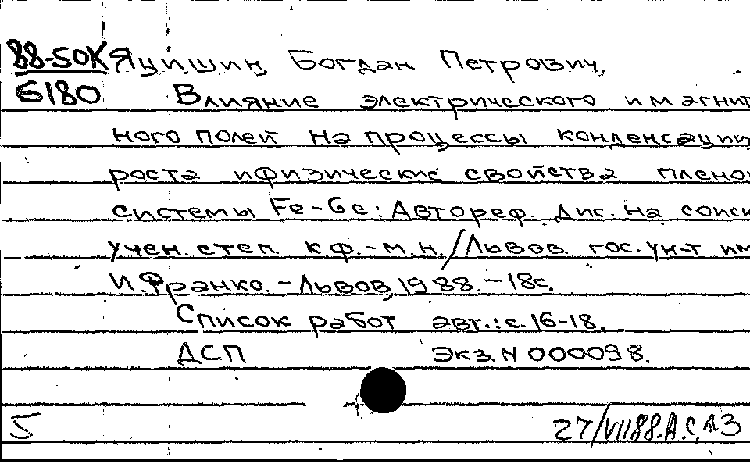 88-50К Яцишин, Богдан Петрович.
6180 Влияние электрического и магнит
ного полей на процессы конденсации
роста и физические свойства плено
системы Fe-Ge: Автореф. дис. на соиск
учен. степ. к.ф.-м.н./Львов. гос. ун-т им
И. Франко. - Львов, 1988. - 18с.
Список работ авт.: с. 16-18.
ДСП Экз. N 000098.
5 27/VII88.А.С.